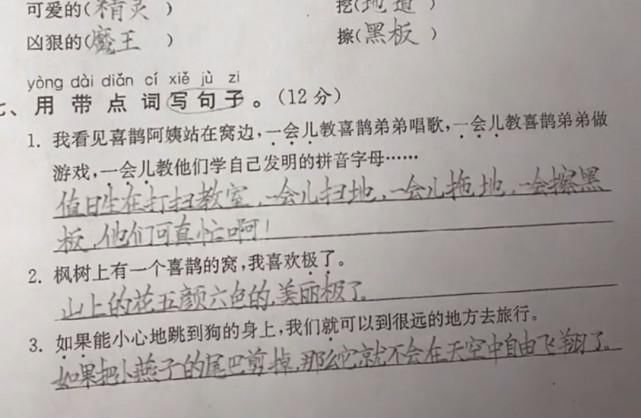 可爱的(精灵) 挖(地道)
凶狠的(魔王) 擦(黑板)
yòng dài diǎn cí xiě jù zi
七、用带点词写句子。(12分)
1. 我看见喜鹊阿姨站在窝边,一会儿教喜鹊弟弟唱歌,一会儿教喜鹊弟弟做
游戏,一会儿教他们学自己发明的拼音字母……
值日生在打扫教室,一会儿扫地,一会儿拖地,一会擦黑
板,他们可真忙啊!
2. 枫树上有一个喜鹊的窝,我喜欢极了。
山上的花五颜六色的,美丽极了。
3. 如果能小心地跳到狗的身上,我们就可以到很远的地方去旅行。
如果把小燕子的尾巴剪掉,那么它就不会在天空中自由飞翔了。